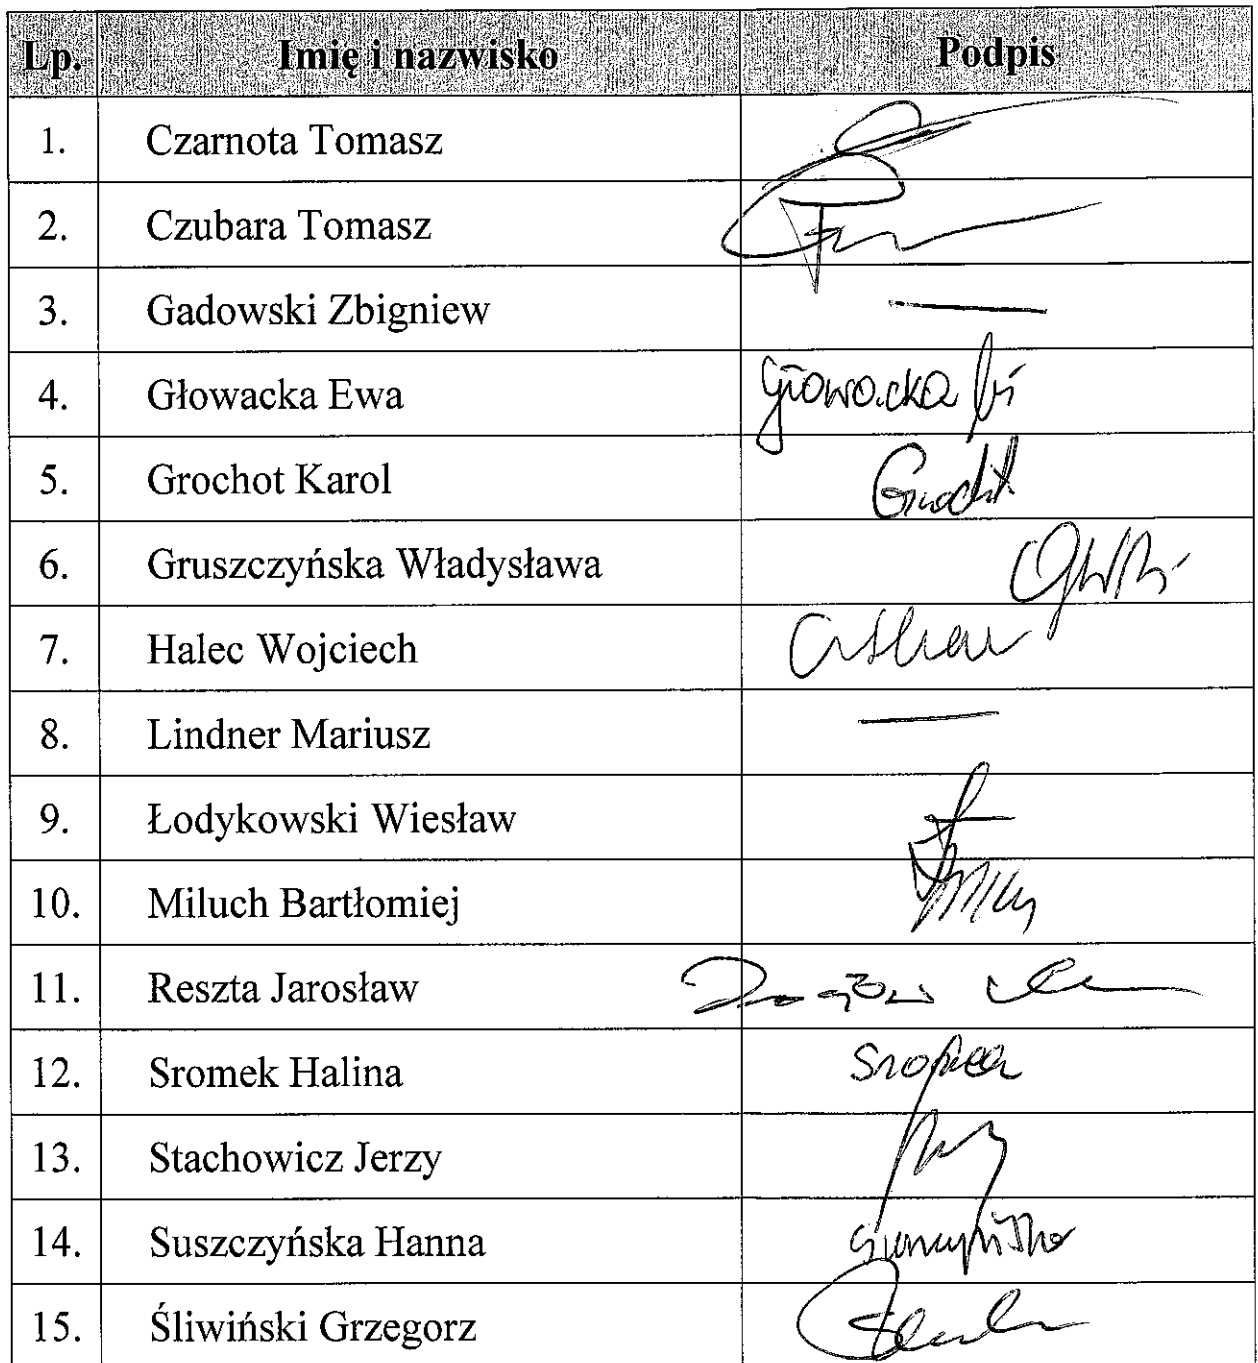 Lp. Imię i nazwisko Podpis
1. Czarnota Tomasz
2. Czubara Tomasz
3. Gadowski Zbigniew —
4. Głowacka Ewa Głowacka
5. Grochot Karol Grochot
6. Gruszczyńska Władysława
7. Halec Wojciech
8. Lindner Mariusz —
9. Łodykowski Wiesław
10. Miluch Bartłomiej
11. Reszta Jarosław
12. Sromek Halina
13. Stachowicz Jerzy
14. Suszczyńska Hanna
15. Śliwiński Grzegorz